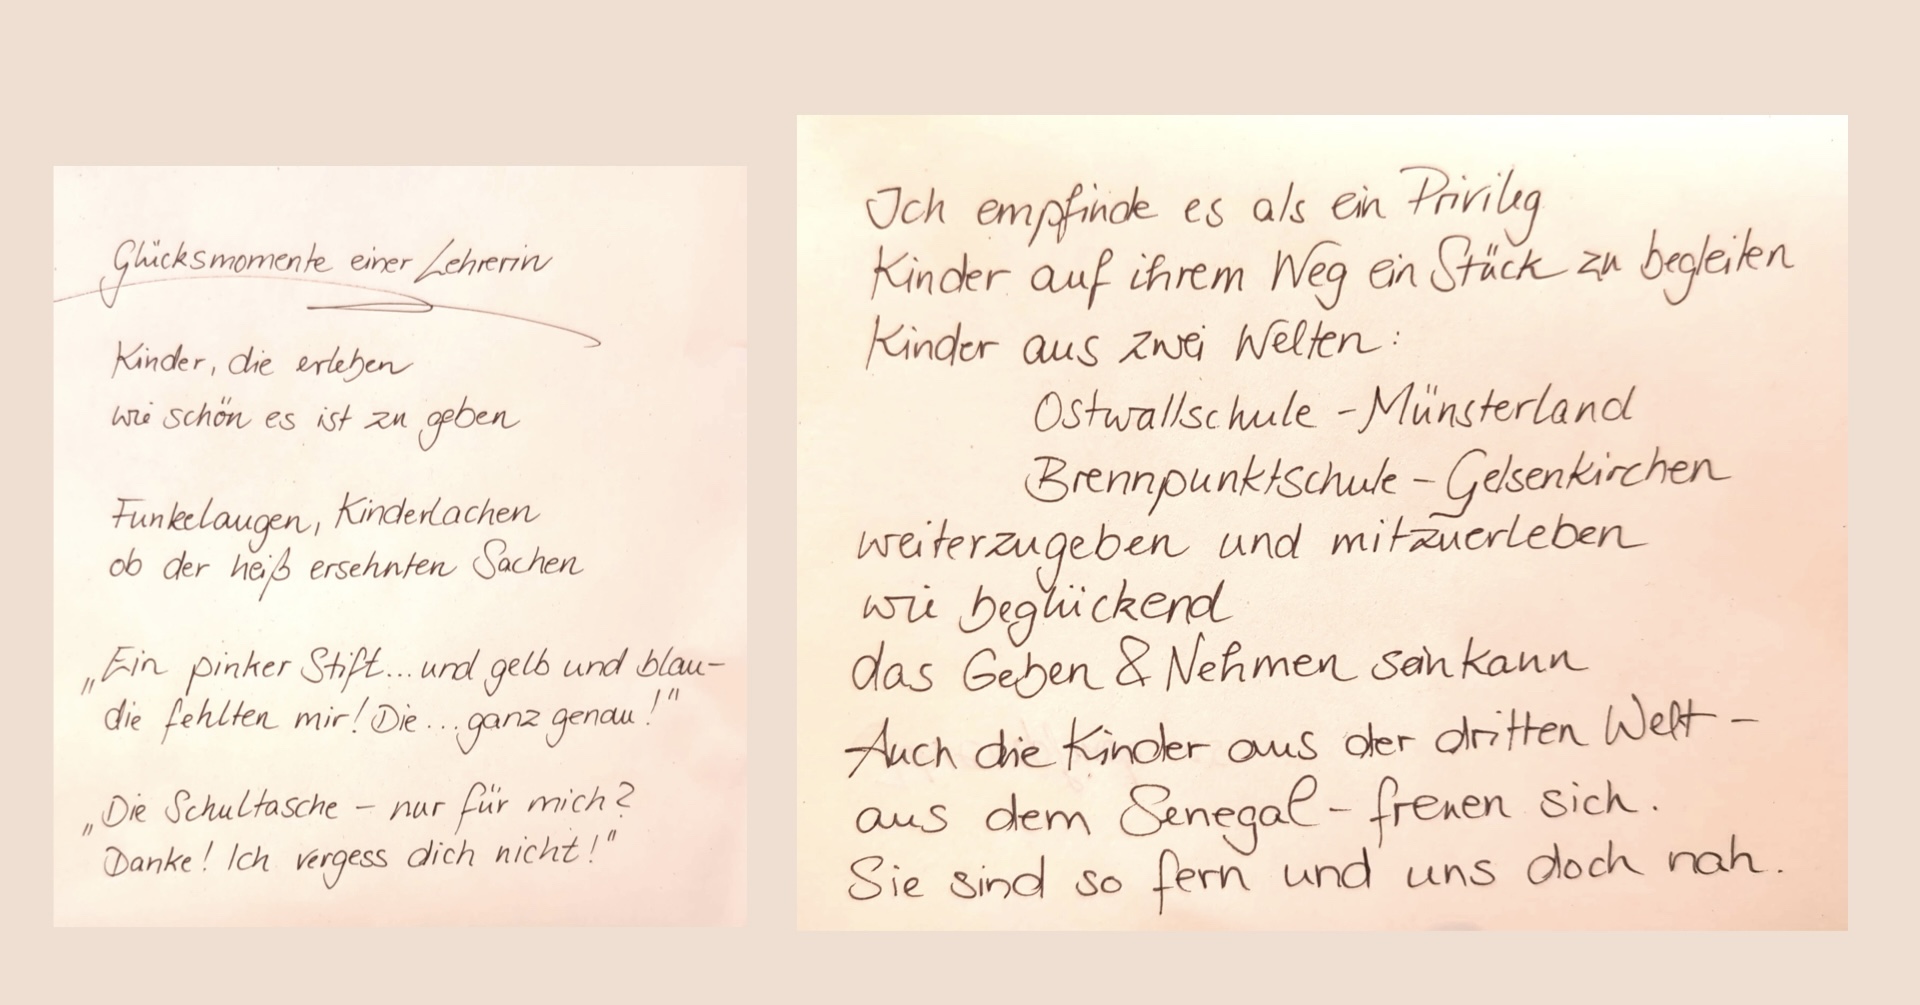 Glücksmomente einer Lehrerin
Kinder, die erleben
wie schön es ist zu geben
Funkelaugen, Kinderlachen
ob der heiß ersehnten Sachen
„Ein pinker Stift... und gelb und blau-
die fehlten mir! Die... ganz genau!"
„Die Schultasche – nur für mich?
Danke! Ich vergess dich nicht!"
Ich empfinde es als ein Privileg
Kinder auf ihrem Weg ein Stück zu begleiten
Kinder aus zwei Welten:
Ostwallschule - Münsterland
Brennpunktschule - Gelsenkirchen
weiterzugeben und mitzuerleben
wie beglückend
das Geben & Nehmen sein kann
Auch die Kinder aus der dritten Welt -
aus dem Senegal - freuen sich.
Sie sind so fern und uns doch nah.